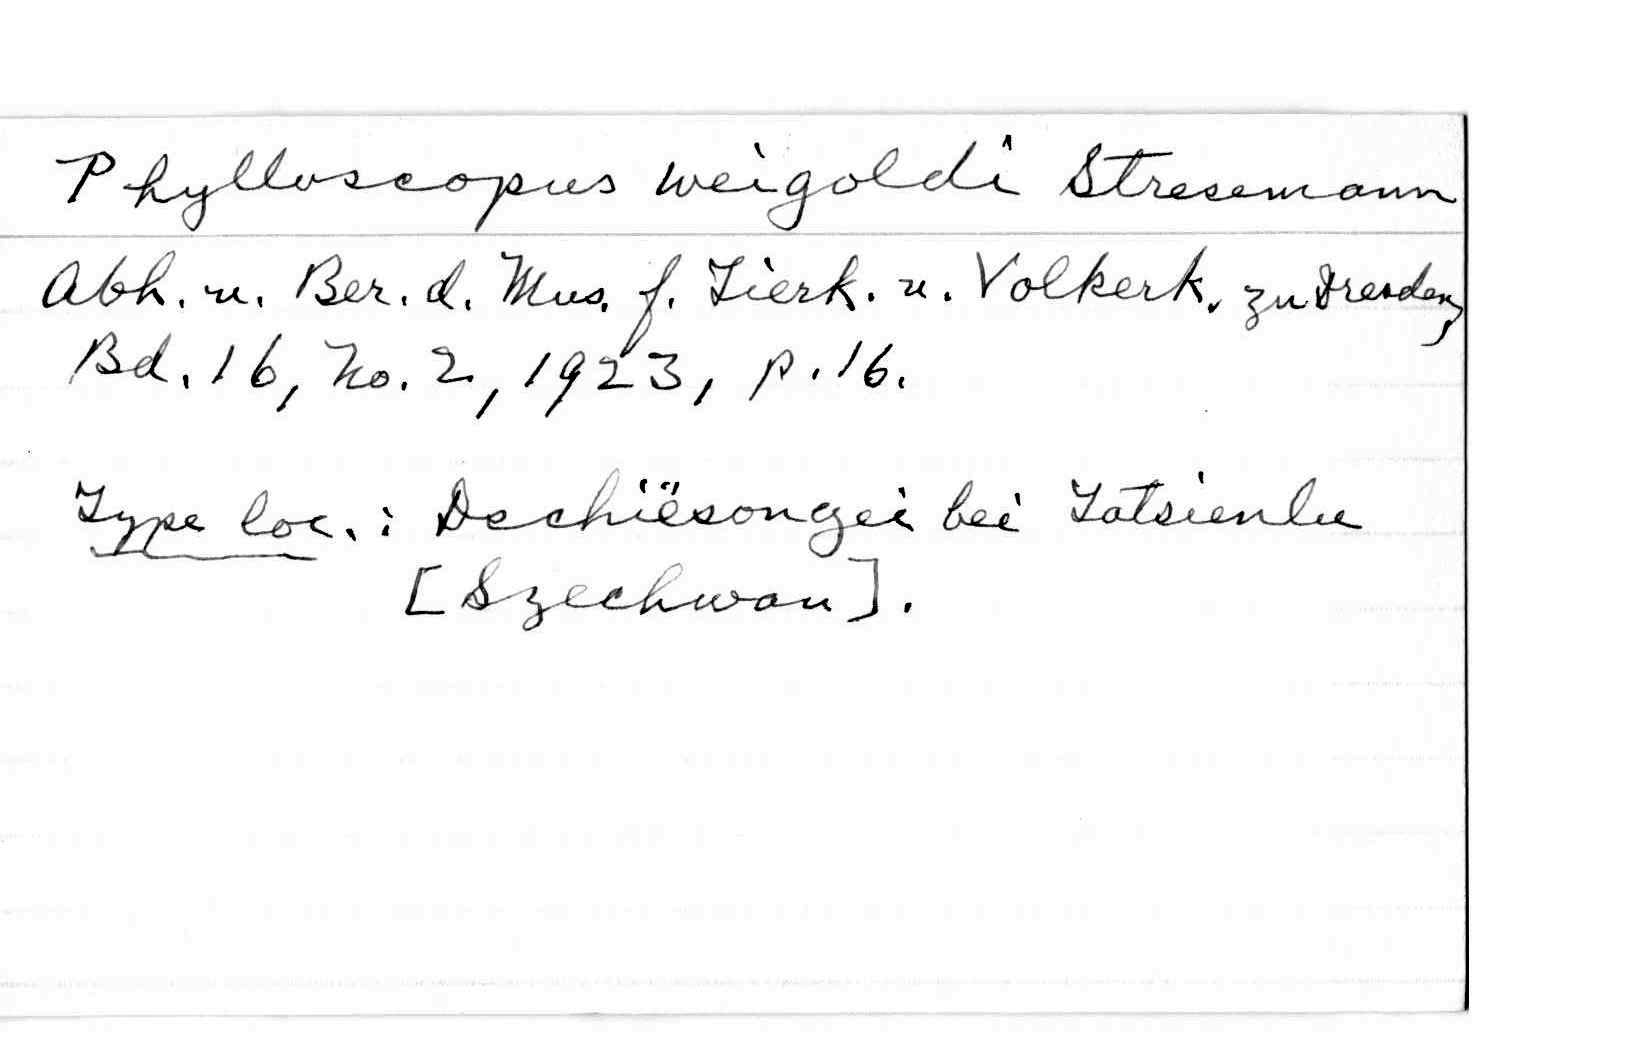 Phylloscopus weigoldi Stresemann
Abh. u. Ber. d. Mus. f. Tierk. u. Volkerk. zu Dresden,
Bd. 16, No. 2, 1923, p. 16.
Type loc.: Dschiësongei bei Tatsienlu
[Szechwan].